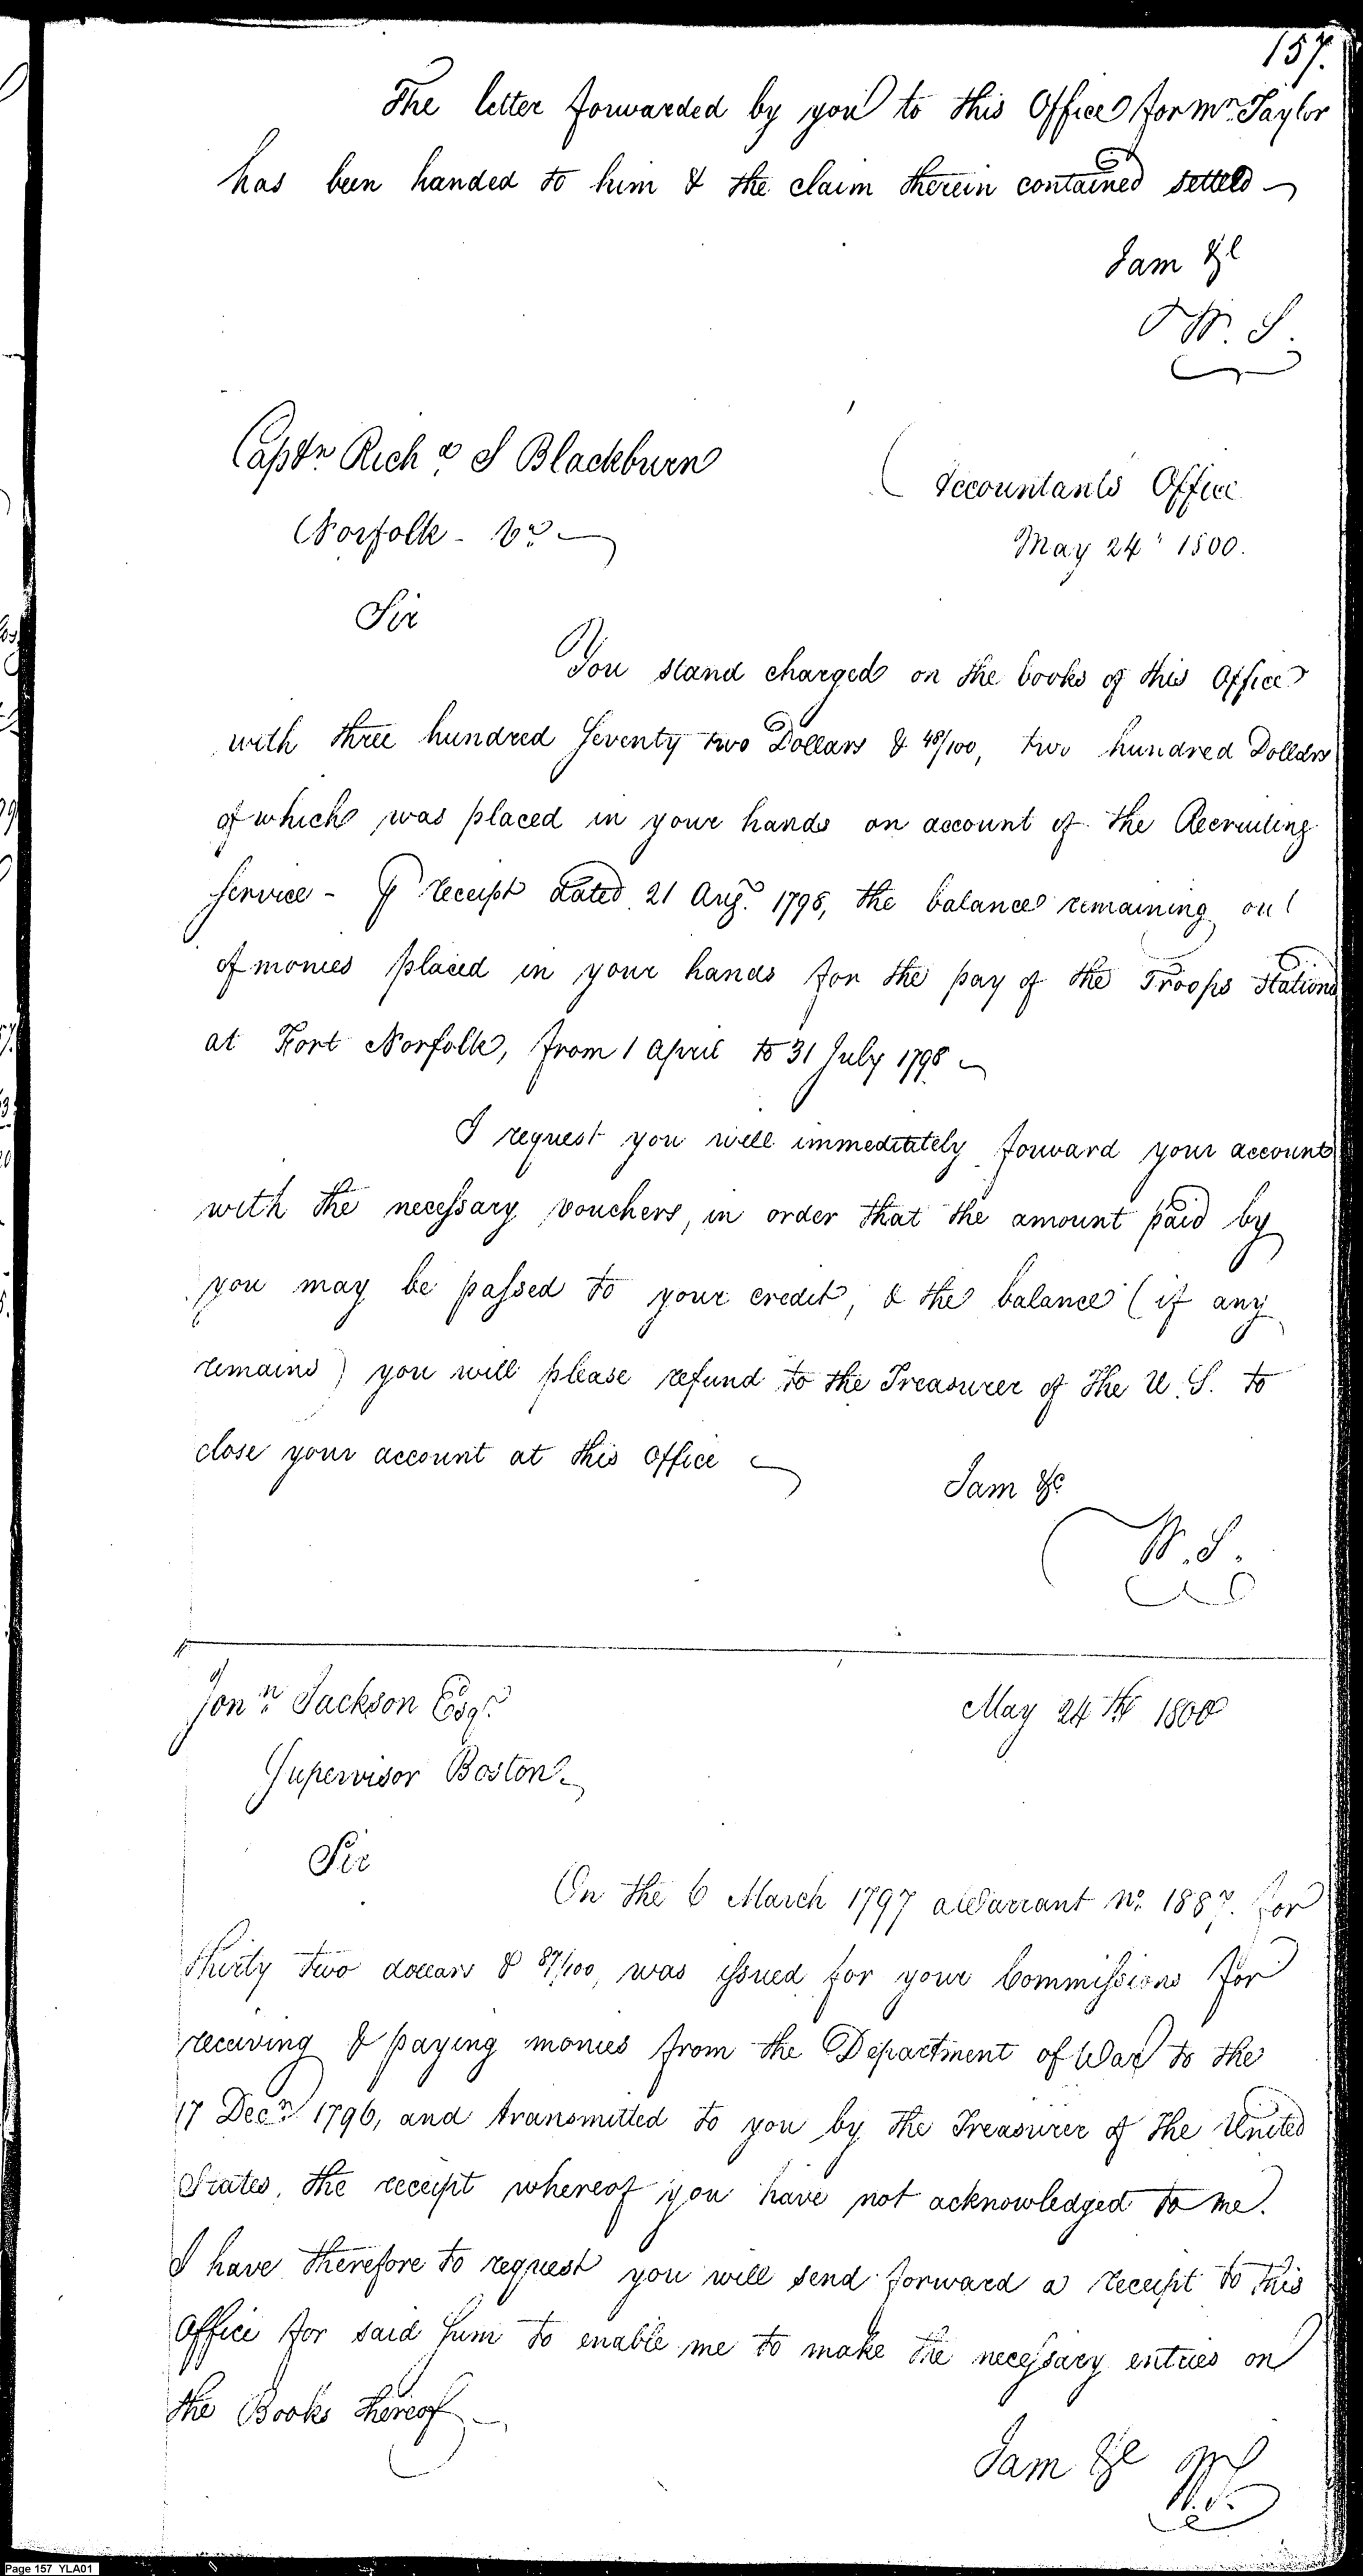 157.
The letter forwarded by you to this Office for Mr. Taylor
has been handed to him & the claim therein contained settled
I am &c
W. S.
Captn Richd S Blackburn
Accountants Office
Norfolk - Va
May 24th 1800.
Sir
You stand charged on the books of this Office
with three hundred Seventy two Dollars & 48/100, two hundred Dollars
of which was placed in your hands on account of the Recruiting
Service - receipt dated 21 Augt. 1798, the balance remaining out
of monies placed in your hands for the pay of the Troops Stationd
at Fort Norfolk, from 1 April to 31 July 1798
I request you will immediately forward your accounts
with the necessary vouchers, in order that the amount paid by
you may be passed to your credit, & the balance (if any
remains) you will please refund to the Treasurer of the U. S. to
close your account at this office
I am &c
W. S.
Jonn. Jackson Esqr.
May 24th 1800
Supervisor Boston
Sir
On the 6 March 1797 a Warrant No. 1887. for
thirty two dollars & 87/100, was issued for your Commissions for
receiving & paying monies from the Department of War to the
17 Decr 1796, and transmitted to you by the Treasurer of the United
States, the receipt whereof you have not acknowledged to me.
I have therefore to request you will send forward a receipt to this
Office for said Sum to enable me to make the necessary entries on
the Books thereof
I am &c
W. S.
Page 157 YLA01